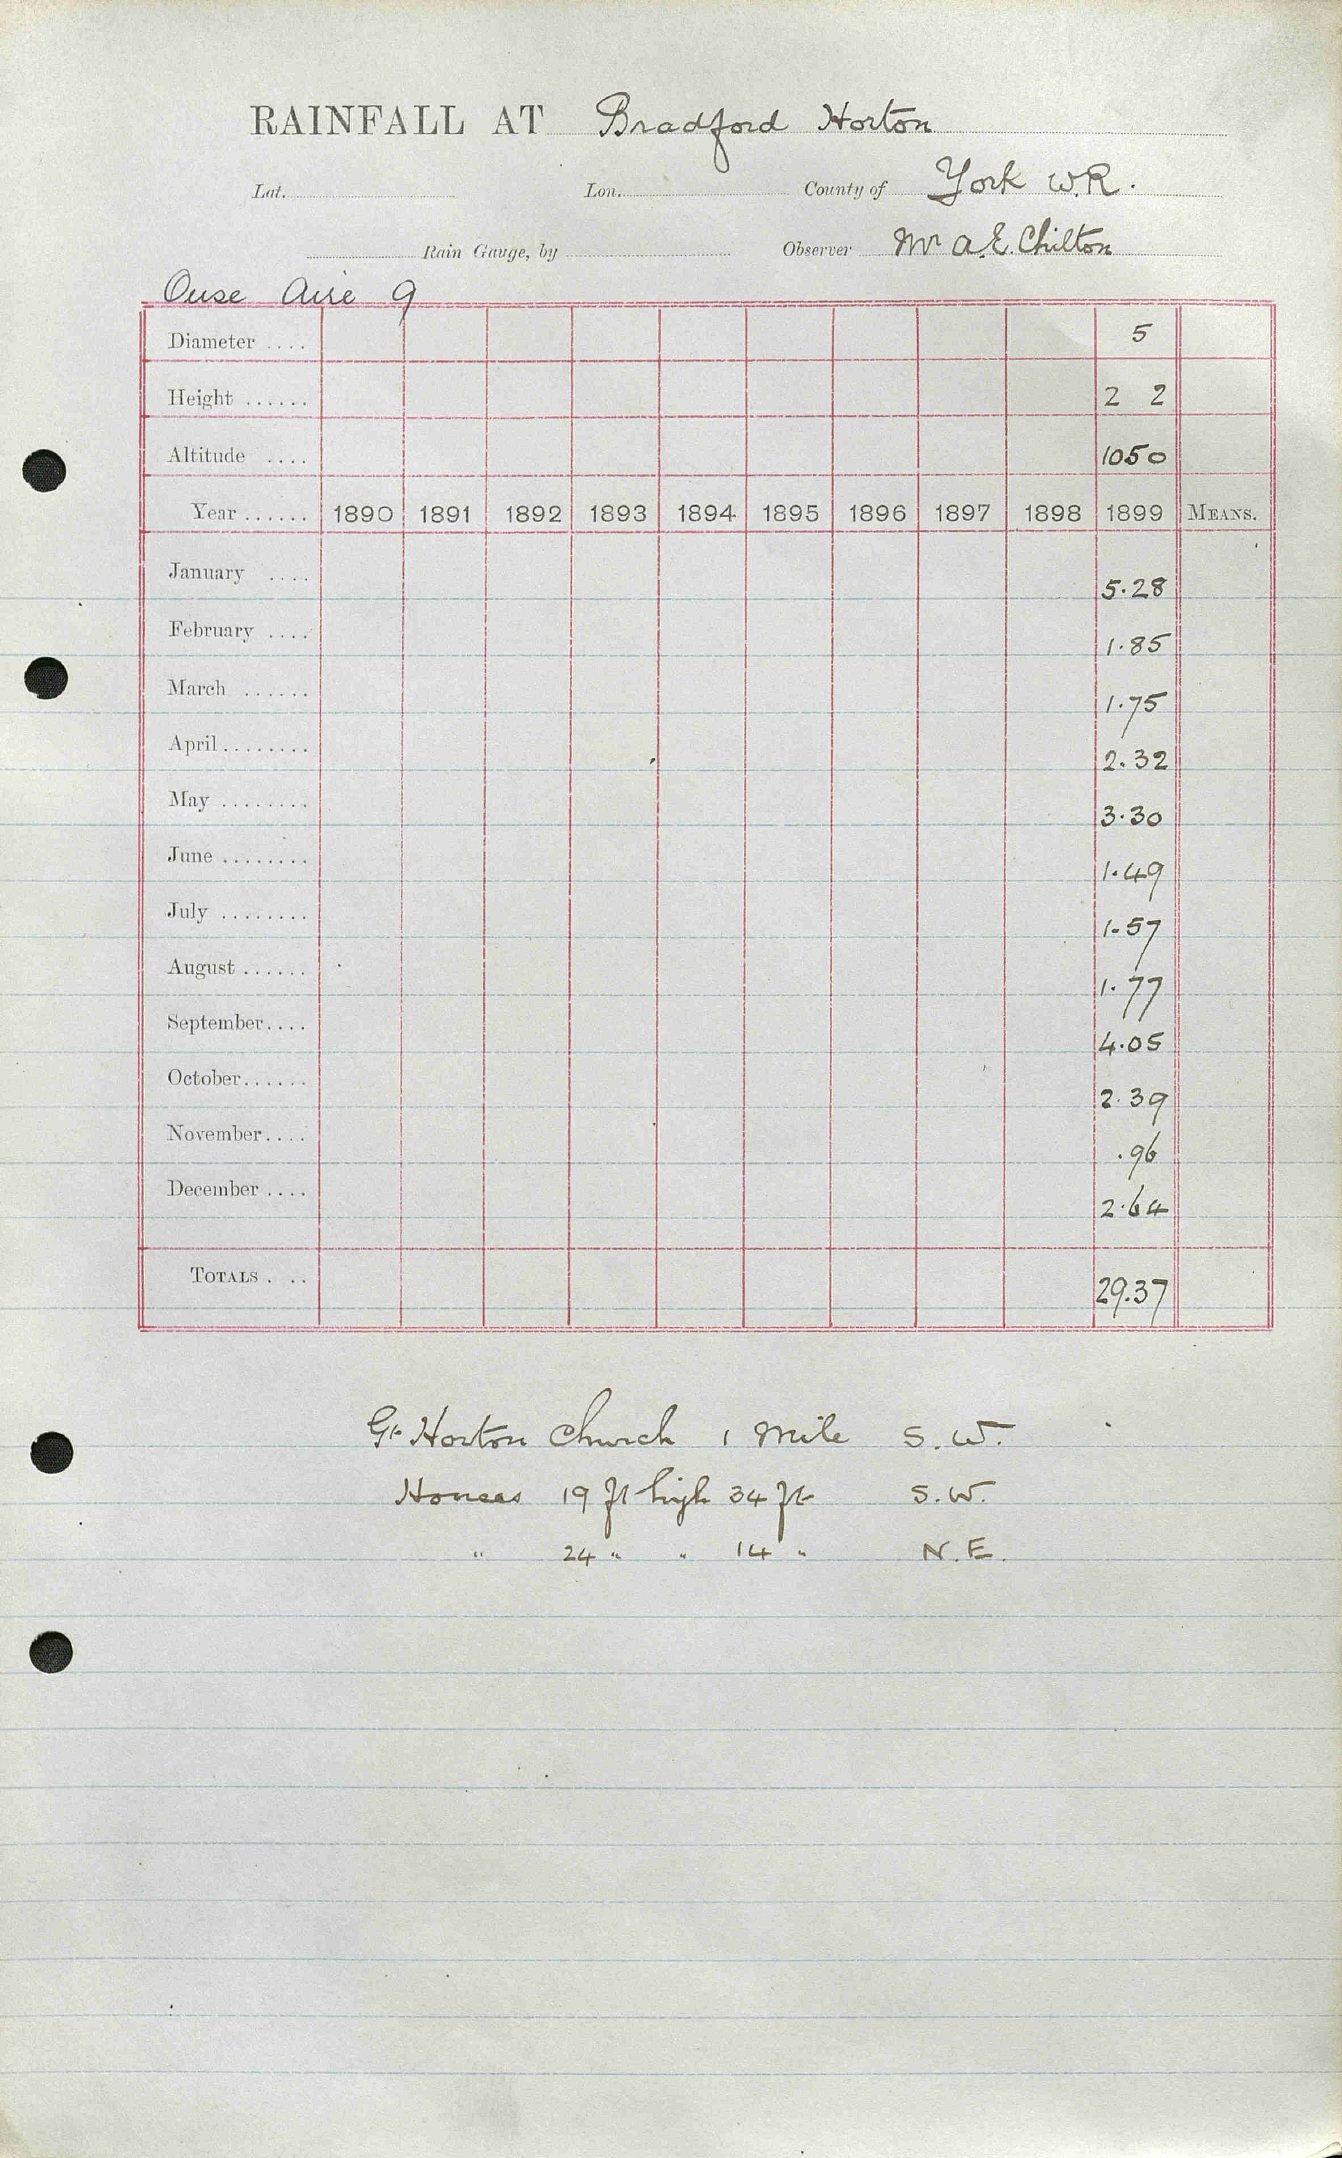 RAINFALL AT Bradford Horton
Lat. Lon. County of York W.R.
Rain Gauge, by Observer Mr A.E. Chilton
Ouse Aire 9
Diameter .... 5
Height ...... 2 2
Altitude .... 1050
Year ...... 1890 1891 1892 1893 1894 1895 1896 1897 1898 1899 MEANS.
January .... 5.28
February .... 1.85
March ...... 1.75
April ........ 2.32
May ........ 3.30
June ........ 1.49
July ........ 1.57
August ...... 1.77
September.... 4.05
October...... 2.39
November.... .96
December .... 2.64
TOTALS . .. 29.37
Gt Horton Church 1 Mile S.W.
Houses 19 ft high 34 ft S.W.
" 24 " " 14 " N.E.